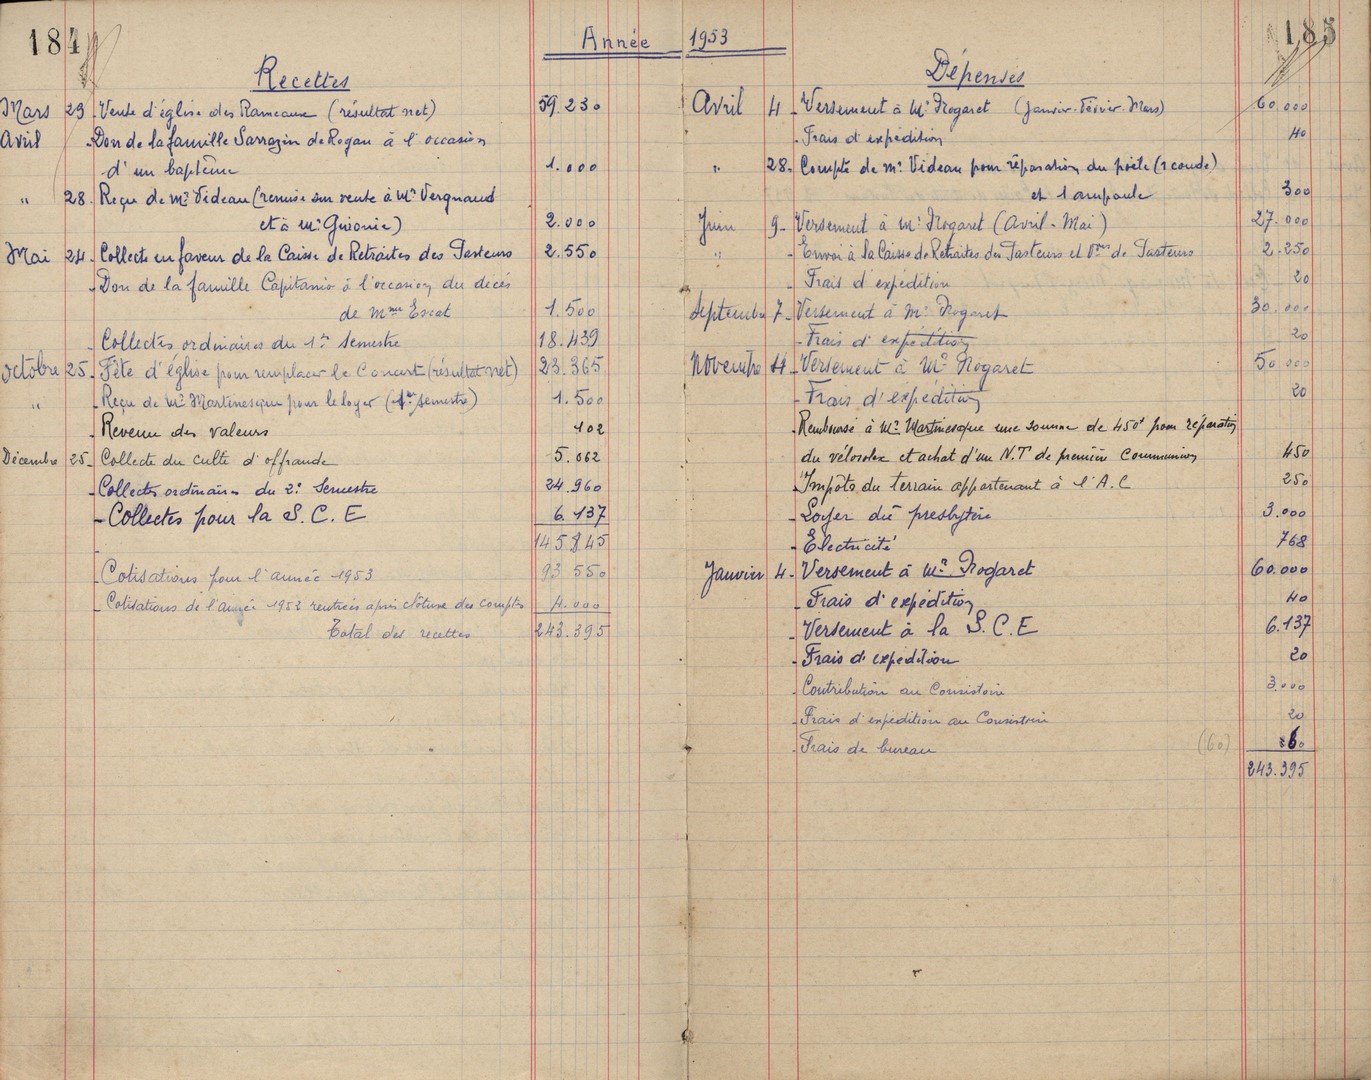 184
Année 1953
185
Recettes
Mars 23 - Vente d'église des Rameaux (résultat net) 59.230
Avril - Don de la famille Sarrazin de Rogan à l'occasion
d'un baptême 1.000
" 28 - Reçu de Mr Videau (remise sur vente à Mr Vergnaud
et à Mr ) 2.000
Mai 24 - Collecte en faveur de la Caisse de Retraites des Pasteurs 2.550
- Don de la famille Capitanio à l'occasion du décès
de Mme Escat 1.500
- Collectes ordinaires du 1er Semestre 18.439
Octobre 25 - Fête d'église pour remplacer le Concert (résultat net) 23.365
" - Reçu de Mr Martinesque pour le loyer (1er semestre) 1.500
- Revenu des valeurs 102
Décembre 25 - Collecte du culte d'offrande 5.062
- Collectes ordinaires du 2e Semestre 24.960
- Collectes pour la S.C.E 6.137
- 145.845
- Cotisations pour l'année 1953 93.550
- Cotisations de l'année 1953 rentrées après clôture des comptes 4.000
Total des recettes 243.395
Dépenses
Avril 4 - Versement à Mr Nogaret (Janvier-Février-Mars) 60.000
- Frais d'expédition 40
" 28 - Compte de Mr Videau pour réparation du poële (1 coude)
et 1 ampoule 300
Juin 9 - Versement à Mr Nogaret (Avril-Mai) 27.000
" - Envoi à la Caisse de Retraites des Pasteurs et Vves de Pasteurs 2.250
- Frais d'expédition 20
Septembre 7 - Versement à Mr Nogaret 30.000
- Frais d'expédition 20
Novembre 4 - Versement à Mr Nogaret 50.000
- Frais d'expédition 20
- Remboursé à Mr Martinesque une somme de 450f pour réparation
du vélosolex et achat d'un N.T de première Communion 450
- Impôts du terrain appartenant à l'A.C 250
- Loyer du presbytère 3.000
- Electricité 768
Janvier 4 - Versement à Mr Nogaret 60.000
- Frais d'expédition 40
- Versement à la S.C.E 6.137
- Frais d'expédition 20
- Contribution au Consistoire 3.000
- Frais d'expédition au Consistoire 20
- Frais de bureau (60) 60
243.395